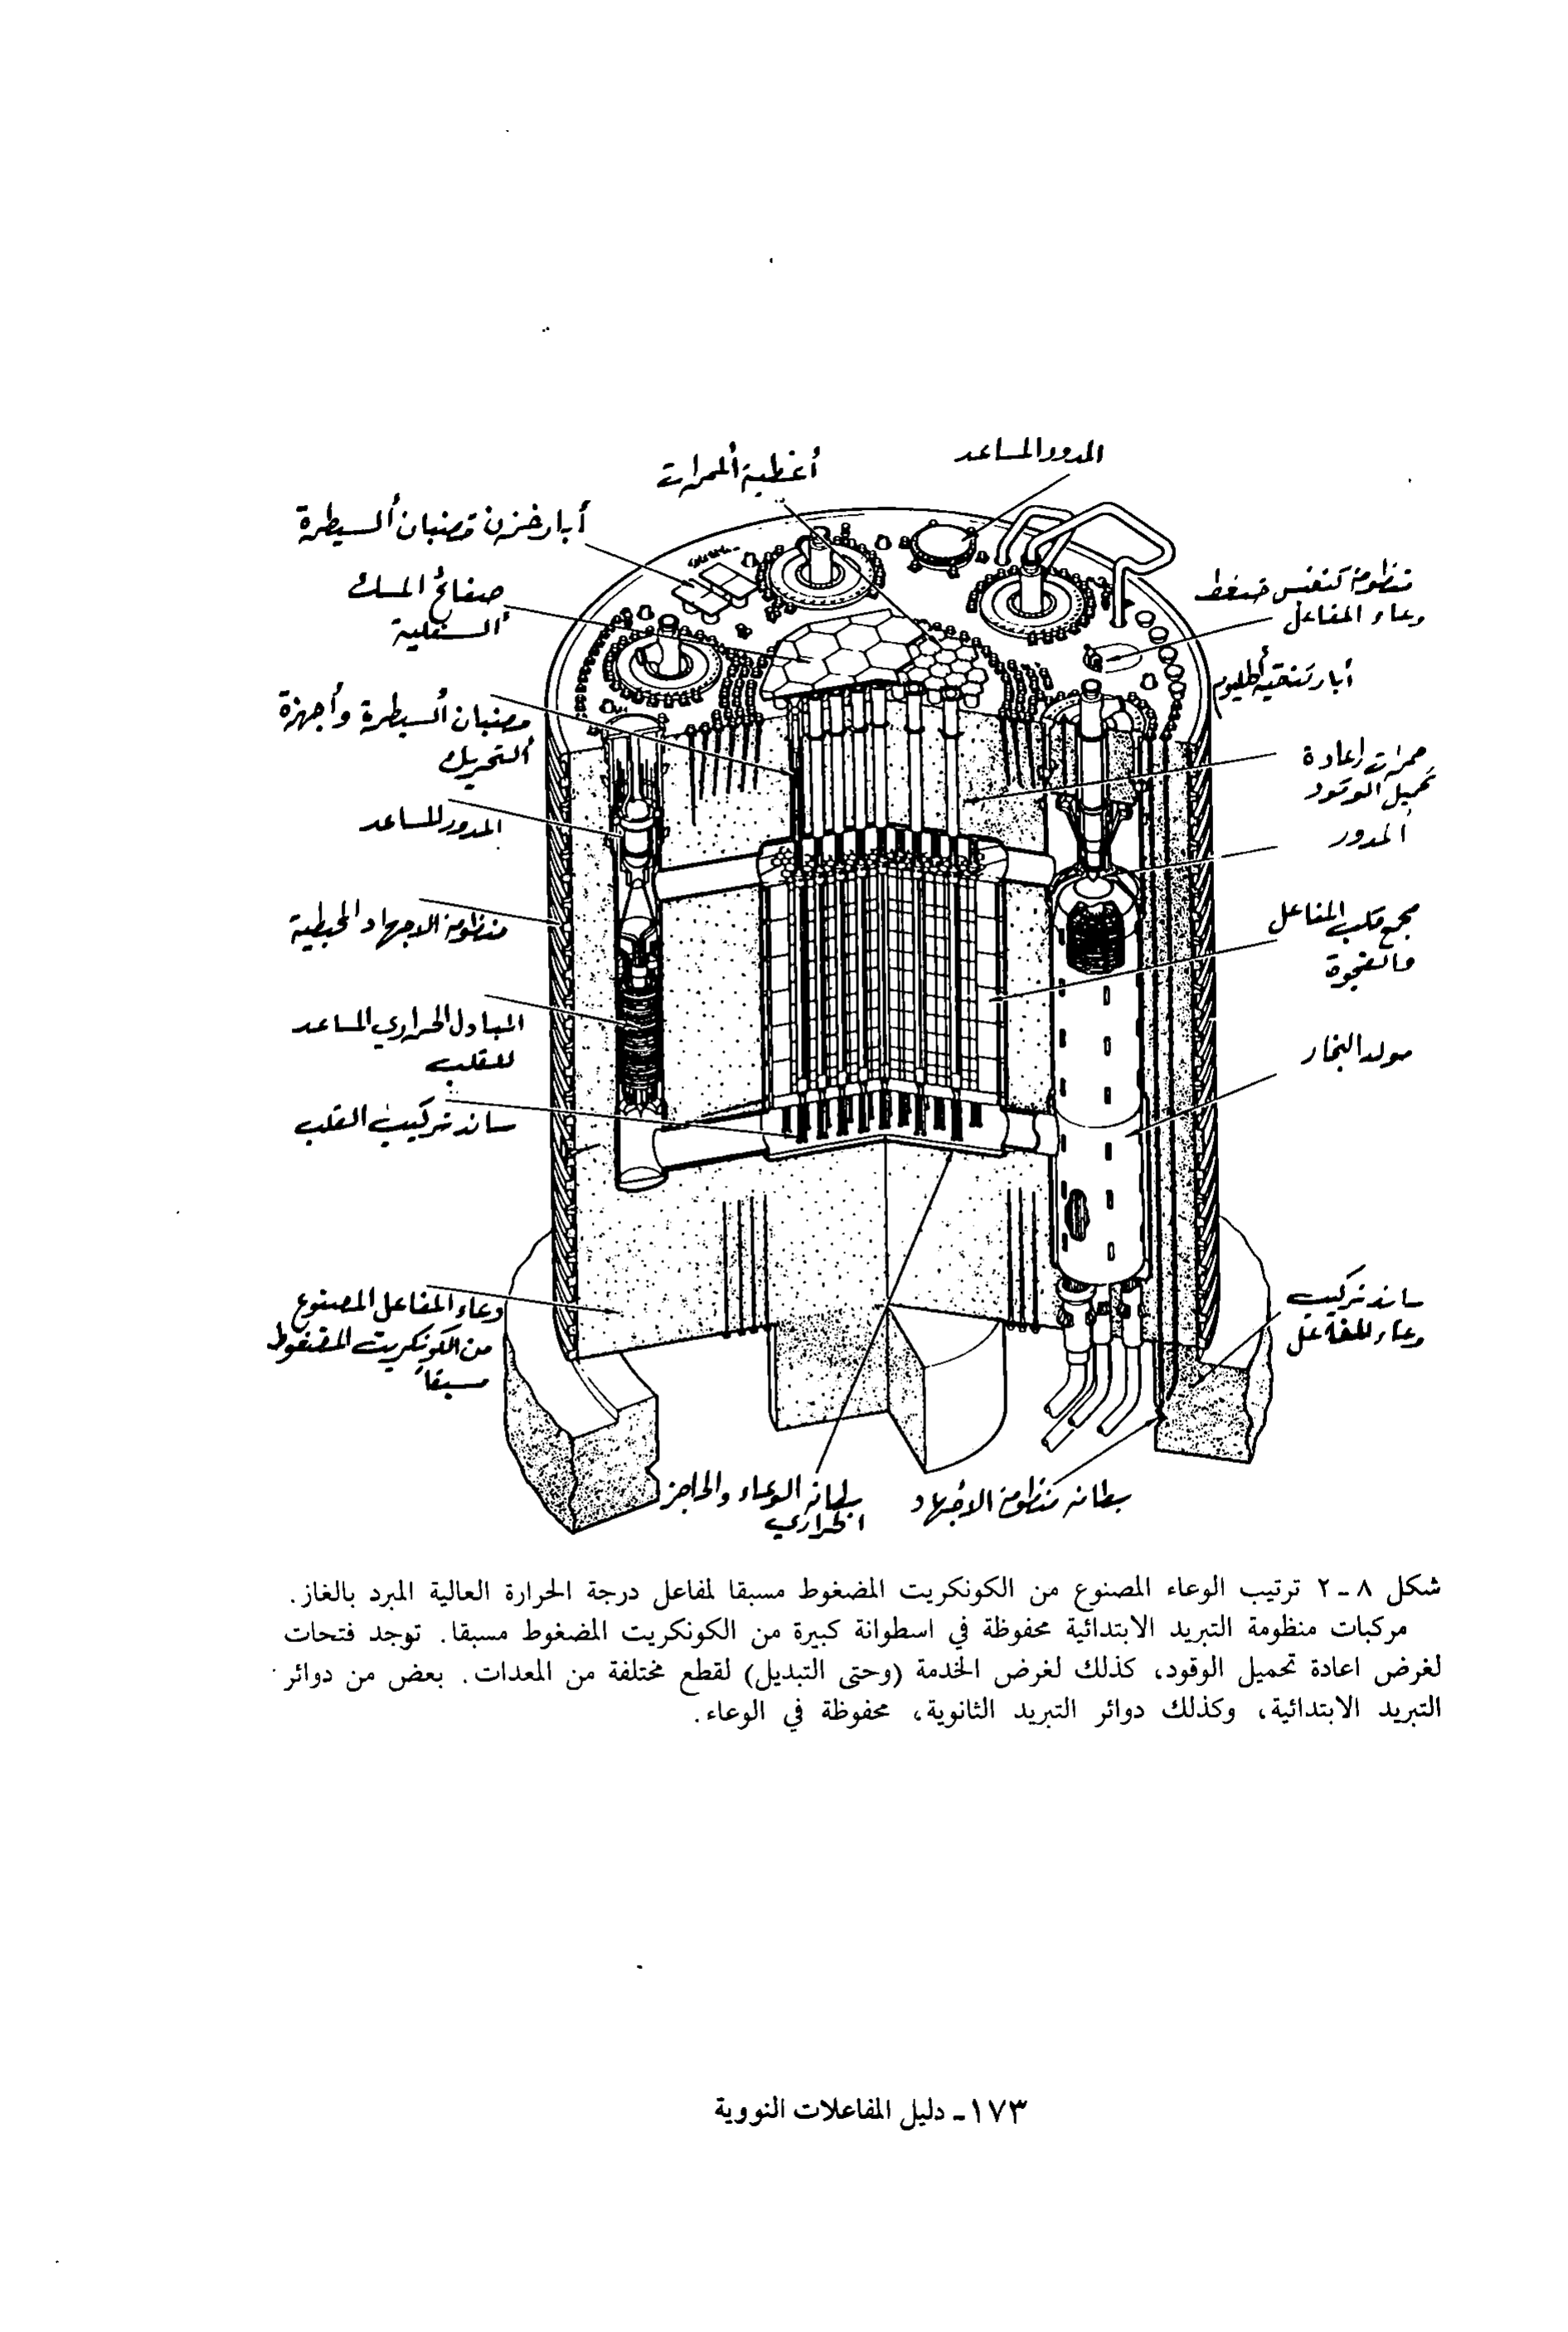 المدور المساعد
أغطية ألممرات
أبار خزن قضبان ألسيطرة
صفائح المسك
ألسفلية
منظومة تنفس ضغط
وعاء المفاعل
أبار تنقية ألهليوم
قضبان ألسيطرة وأجهزة
ألتحريك
ممرات إعادة
تحميل الوقود
المدور المساعد
ألمدور
منظومة الاجهاد المحيطية
مجمع قلب المفاعل
والفجوة
المبادل الحراري المساعد
للقلب
مولد البخار
ساند تركيب القلب
وعاء المفاعل المصنوع
من الكونكريت المضغوط
مسبقاً
ساند تركيب
وعاء المفاعل
بطانة الوعاء والحاجز
الحراري
بطانة منظومة الاجهاد
شكل ٨ـ٢ ترتيب الوعاء المصنوع من الكونكريت المضغوط مسبقا لمفاعل درجة الحرارة العالية المبرد بالغاز.
مركبات منظومة التبريد الابتدائية محفوظة في اسطوانة كبيرة من الكونكريت المضغوط مسبقا. توجد فتحات
لغرض اعادة تحميل الوقود، كذلك لغرض الخدمة (وحتى التبديل) لقطع مختلفة من المعدات. بعض من دوائر
التبريد الابتدائية، وكذلك دوائر التبريد الثانوية، محفوظة في الوعاء.
١٧٣ـ دليل المفاعلات النووية